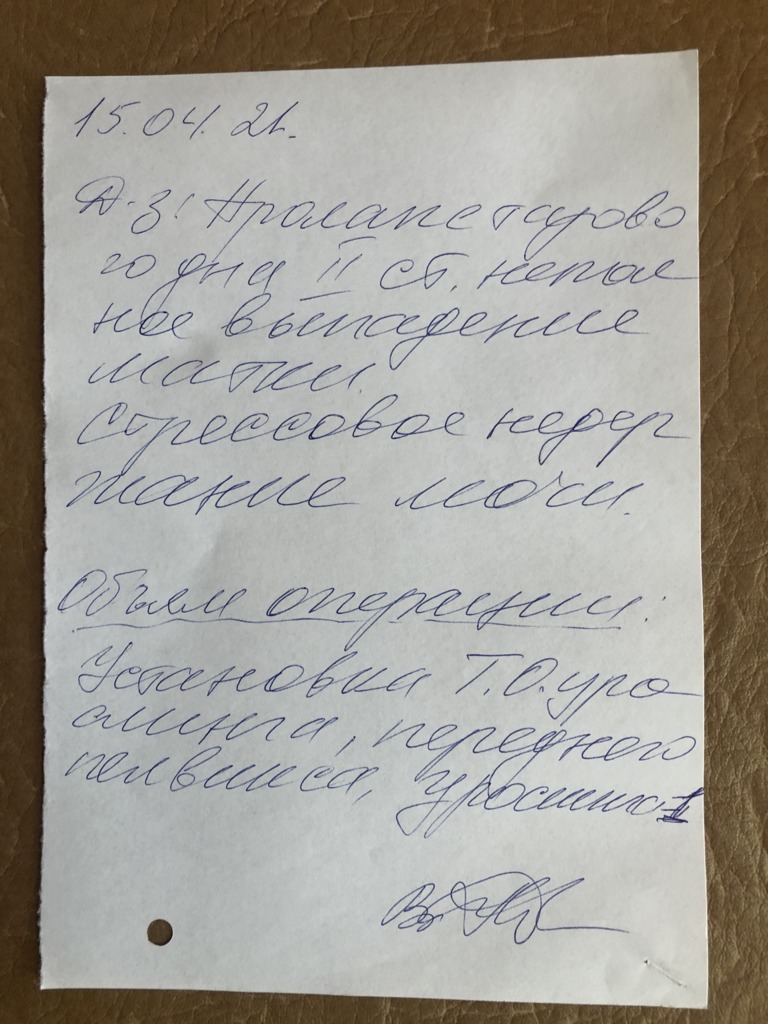 15.04.21.
Д-з: Пролапс тазово
го дна II ст. непол
ное выпадение
матки.
Стрессовое недер
жание мочи.
Объём операции:
Установка Т.О. уро
слинга, переднего
пелвикса, урослинг